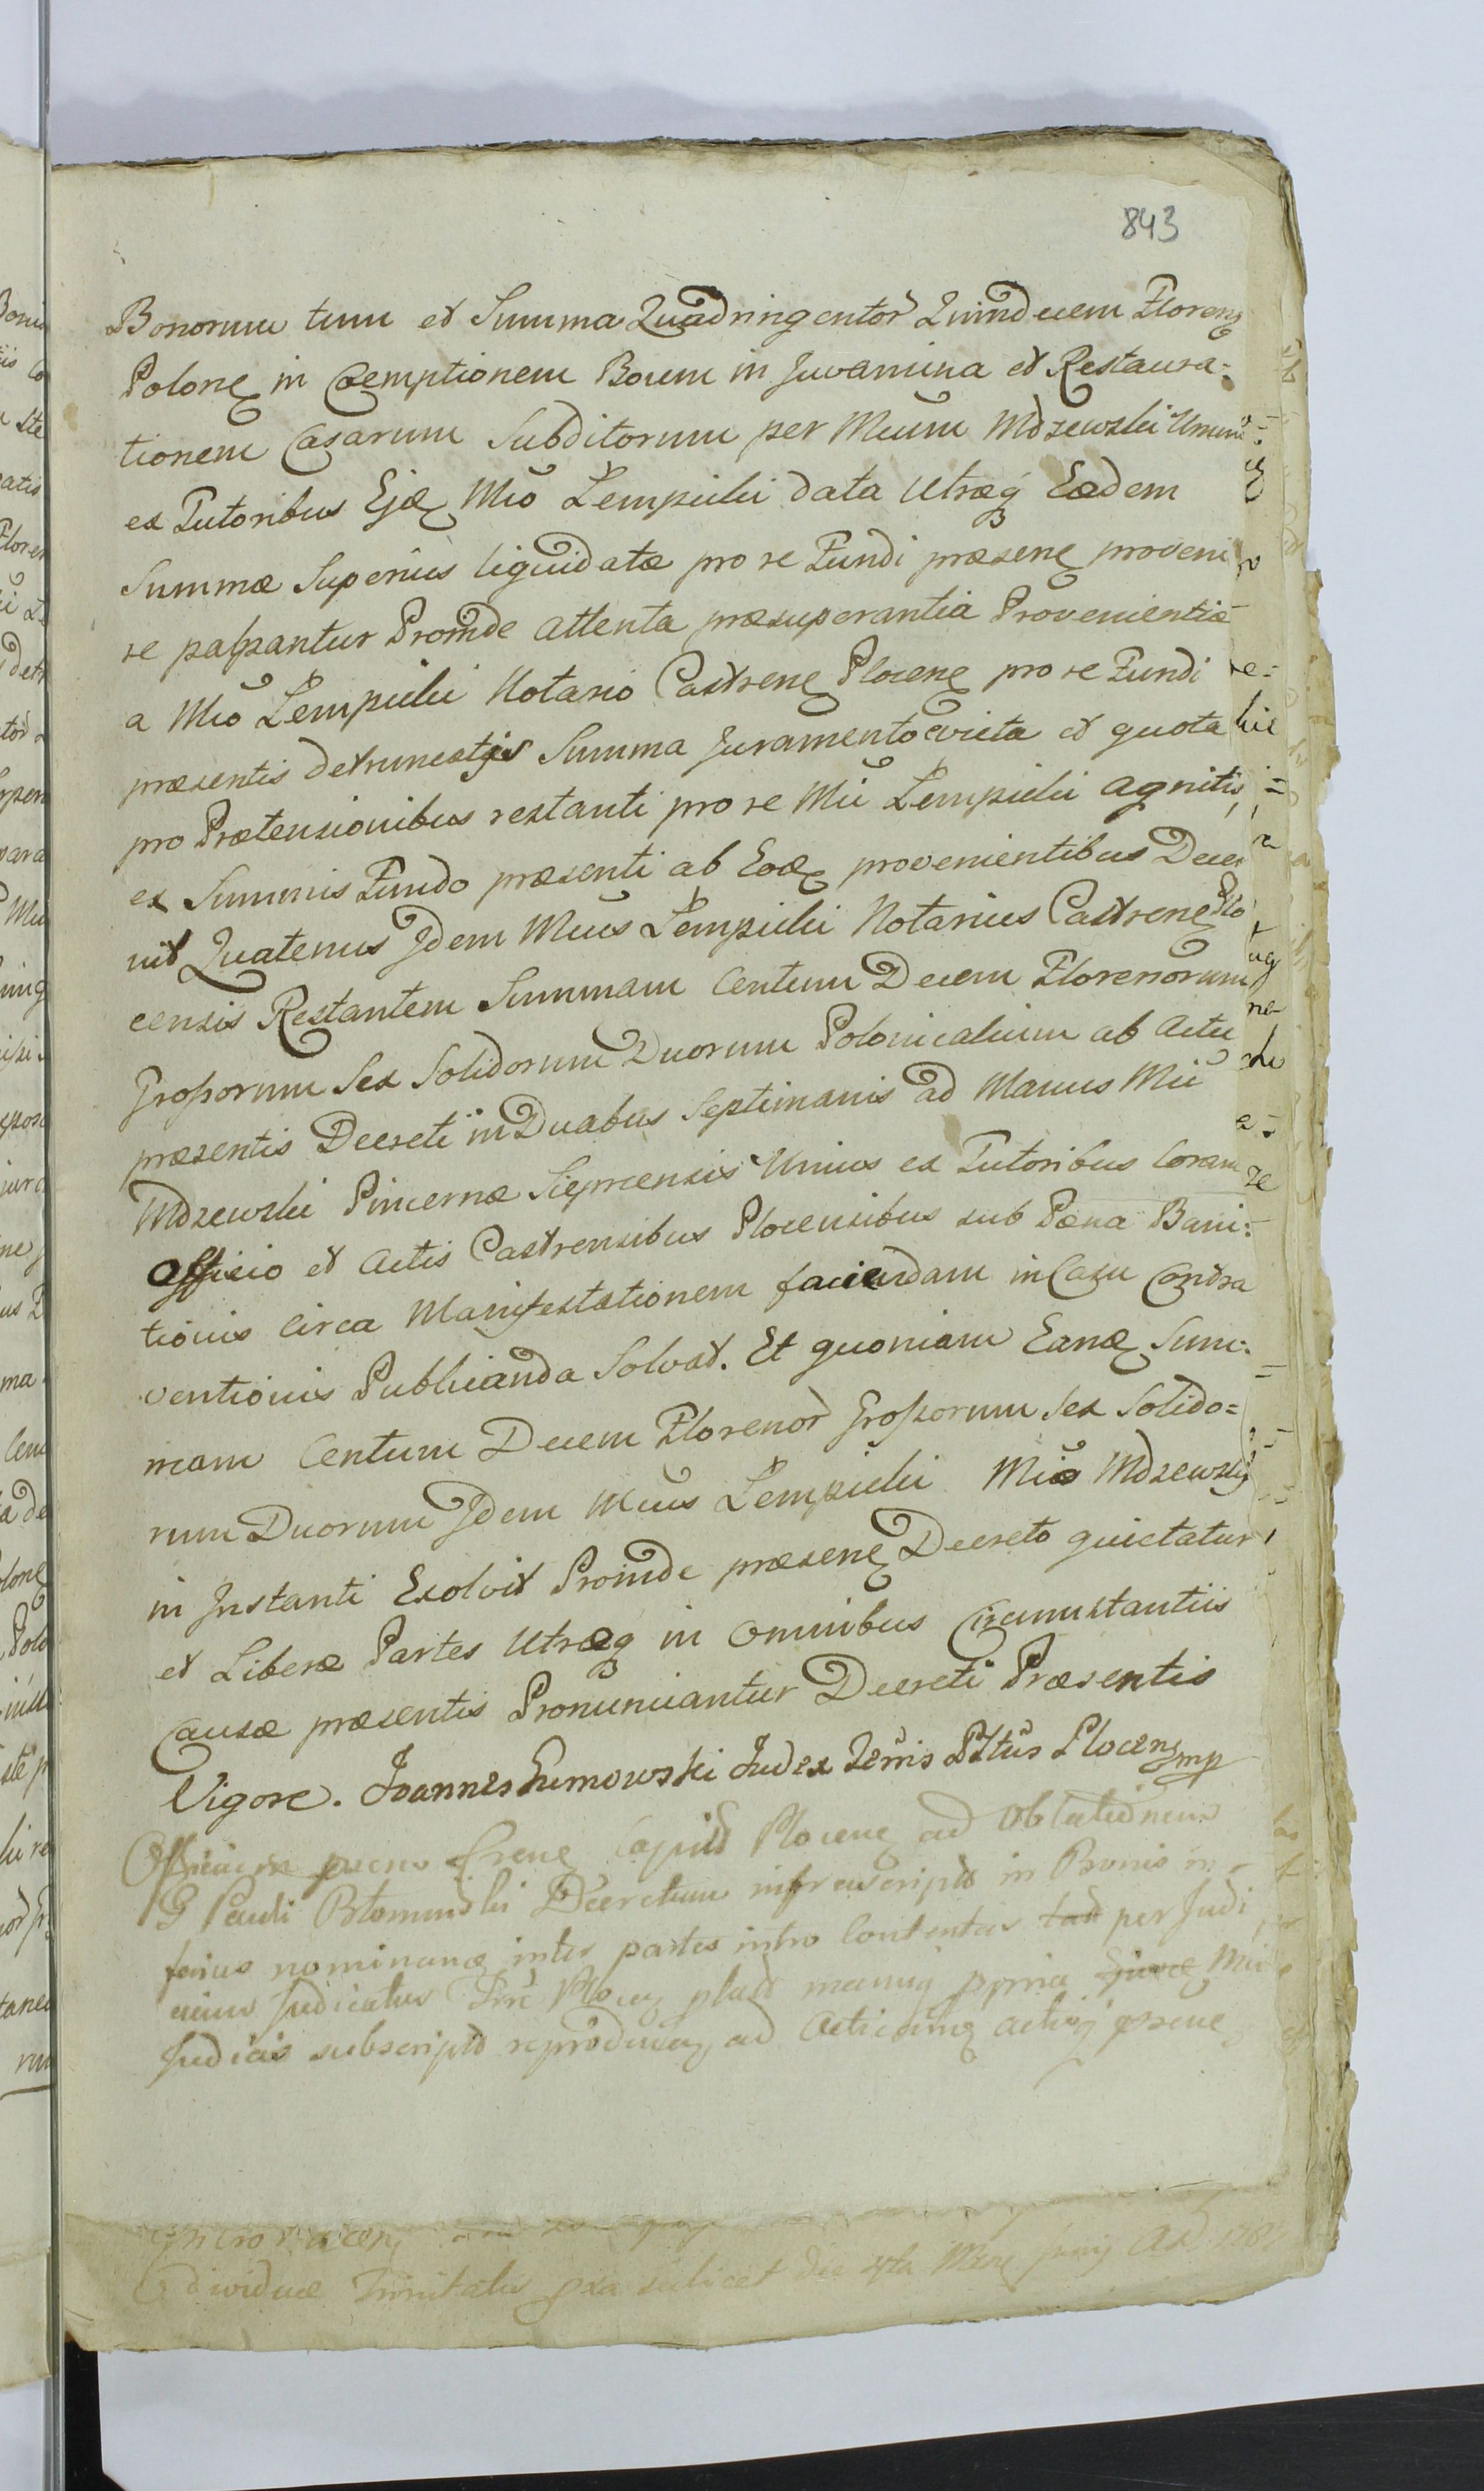 843
Bonorum tum et Summa Quadringentor Quindecem Floren
Polone in Coemptionem Boum in Juvamina et Restaura-
tionem Casarum Subditorum per Mcum Mdzewski Unum
ex Tutoribus Ejde Mco Lempicki data utræq Eædem
Summæ Superius liquidatæ pro re Fundi præsene proveni
re passantur Proinde attenta præsuperantia Provenientiæ
a Mco Lempicki Notario Castrene Plocene pro re Fundi
præsentis detruncatis Summa Juramento evicta et quota
pro Prætensionibus restanti pro re Mci Lempicki agnitis,
ex Summis Fundo præsenti ab Eode provenientibus Decer
nit Quatenus Idem Mcus Lempicki Notarius Castrene Plo
censis Restantem Summam Centum Decem Florenorum
Grossorum Sex Solidorum Duorum Polonicalium ab Actu
præsentis Decreti in Duabus Septimanis ad Manus Mci
Mdzewski Pincernæ Sieprcensis Unius ex Tutoribus Coram
Officio et Actis Castrensibus Plocensibus sub Pæna Bani-
tionis Circa Manifestationem faciendam in Casu Contra
ventionis Publicanda Solvat. Et quoniam Eande Sum-
mam Centum Decem Florenor Grossorum Sex Solido=
rum Duorum Idem Mcus Lempicki Mco Mdzewski
in Instanti Exolvit Proinde præsene Decreto quietatur
et Liberæ Partes Utræq in Omnibus Circumstantiis
Causæ præsentis Pronunciantur Decreti Præsentis
Vigore. Joannes Gumowski Judex Terris Pltus Plocens mp
Officium præns Crene Capitd Plocene ad Oblationem
G Pauli Blominski Decretum infrascriptd in Bonis in-
ferius nominande inter partes intro Contentas per Judi
cium Judicatus Plocen manuq ppria Mci
Judicis subscriptd reproducen ad Acticand actisq præne
dividuæ Trinitatis scilicet die Juny AD 178